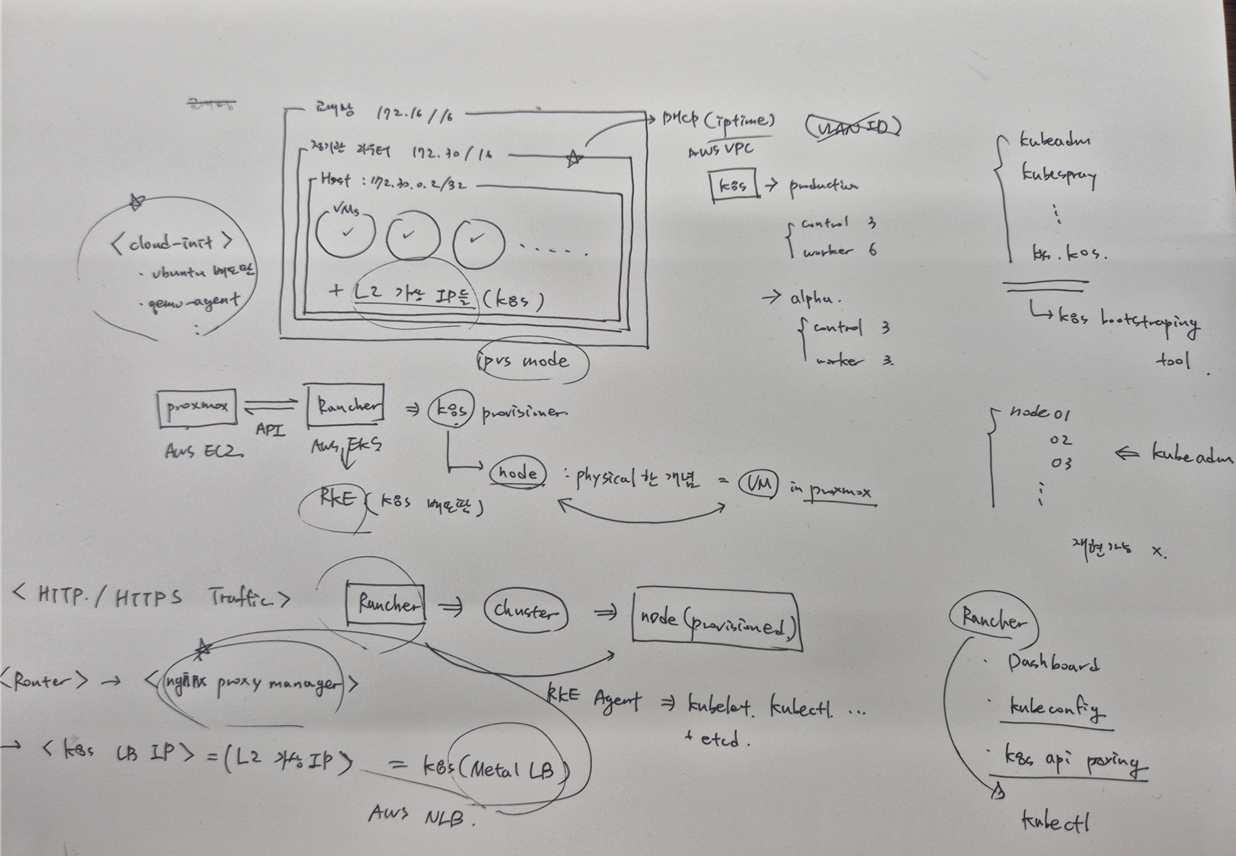 교내망 172.16 / 16
172.30 / 16
Host : 172.30.0.2/32
VMs
+ L2 가상 IP들 (k8s)
ipvs mode
DHCP (iptime)
AWS VPC
(VLAN ID)
k8s → production
control 3
worker 6
→ alpha.
control 3
worker 3.
kubeadm
kubespray
⋮
↳ k8s bootstraping
tool.
< cloud-init >
· ubuntu 배포판
· qemu-agent
:
proxmox
API
Rancher ⇒ k8s provisioner.
AWS EC2
AWS EKS
RKE (k8s 배포판)
node : physical 한 개념 = VM in proxmox
node 01
02
03
⋮
⇐ kubeadm
재현가능 x.
< HTTP. / HTTPS Traffic >
Rancher ⇒ chuster ⇒ node (provisioned)
<Router> → <nginx proxy manager>
RKE Agent ⇒ kubelet. kubectl. ...
+ etcd.
→ < k8s LB IP > = (L2 가상 IP) = k8s (Metal LB)
AWS NLB.
Rancher
· Dashboard
· kubeconfig
· k8s api
kubectl